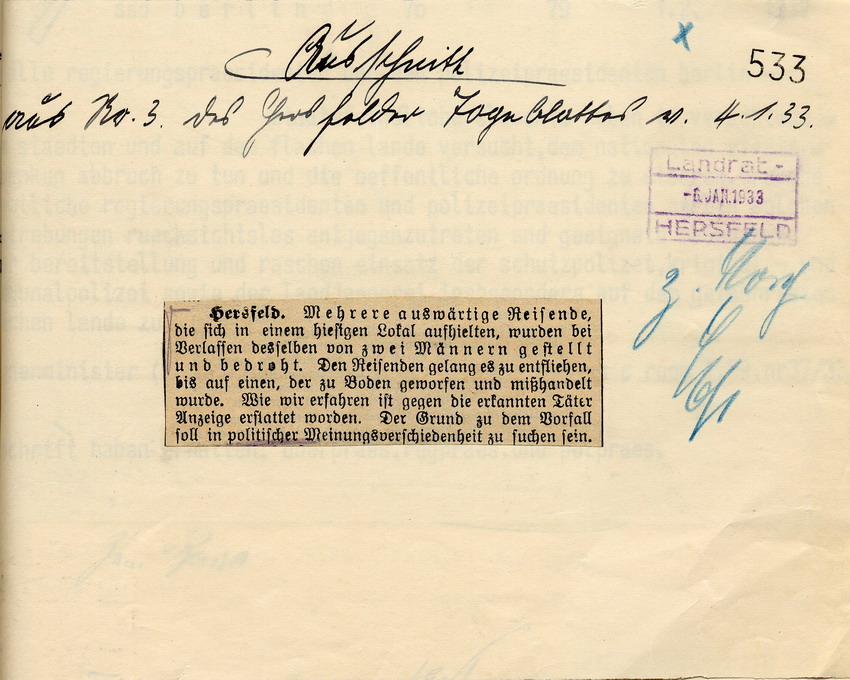 Ausschnitt
533
aus Nr. 3. des Hersfelder Tageblattes v. 4.1.33.
Landrat -
-6. JAN. 1933
HERSFELD
Hersfeld. Mehrere auswärtige Reisende,
die sich in einem hiesigen Lokal aufhielten, wurden bei
Verlassen desselben von zwei Männern gestellt
und bedroht. Den Reisenden gelang es zu entfliehen,
bis auf einen, der zu Boden geworfen und mißhandelt
wurde. Wie wir erfahren ist gegen die erkannten Täter
Anzeige erstattet worden. Der Grund zu dem Vorfall
soll in politischer Meinungsverschiedenheit zu suchen sein.